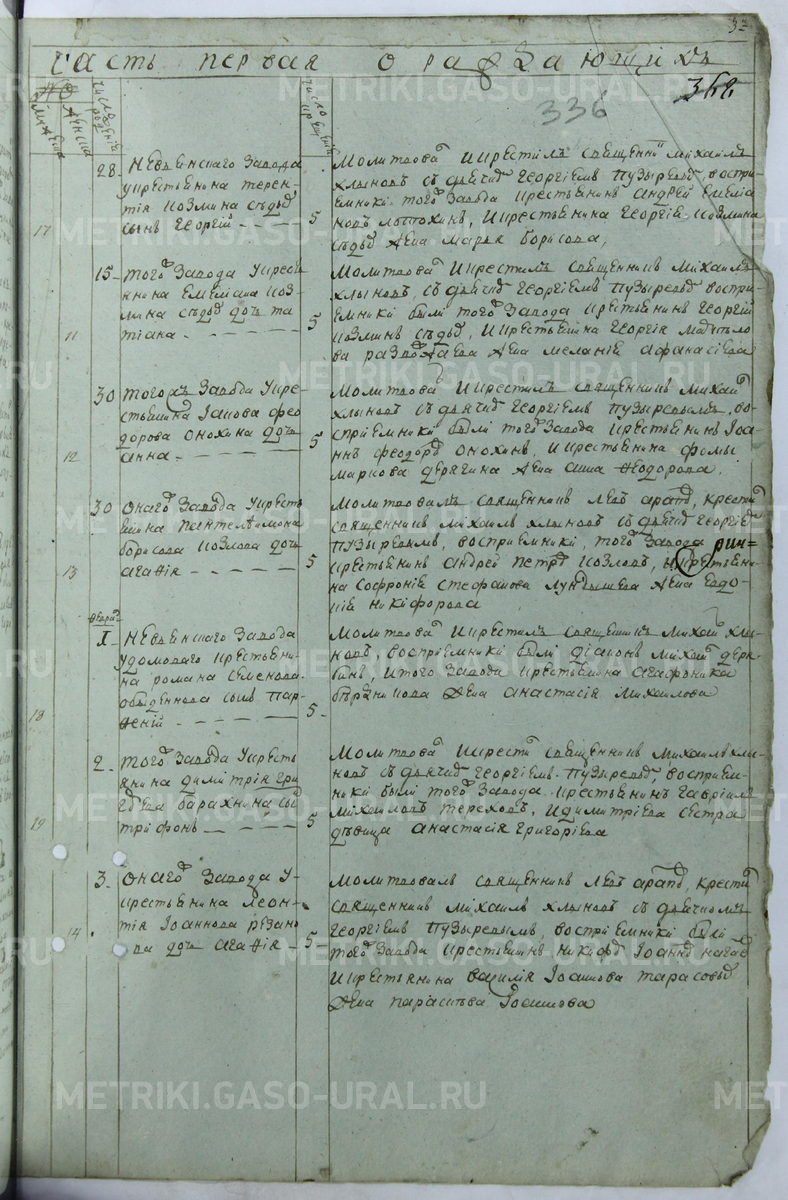 37
часть первая о раждающихъ
362
336
мужеска
женска
число рожденiй
число крещенiй
28
Невьянскаго завода
у крестьянина терен-
тiя козмина седых
сынъ георгiй
17
5
Молитвовал и крестилъ священник михаилъ
хлыновъ с дьячком георгiемъ пузыревым, воспри-
емники того завода крестьянинъ андрей емелiа
новъ лоптохинъ, и крестьянина георгiя козмина
седых жена марья борисова,
15
того завода у кресть
янина емелiана коз
мина седых дочь та
тiана
11
5
Молитвовал и крестилъ священникъ михаилъ
хлыновъ, с дьячком георгiемъ пузыревым воспри-
емники были того завода крестьянинъ георгiй
козминъ седых, и крестьянина георгiя
жена меланiя афанасiева
30
того ж завода у кре-
стьянина iакова фео
дорова онохина дочь
анна
12
5
Молитвовал и крестилъ священникъ михаил
хлыновъ с дьячком георгiемъ пузыревымъ, во-
сприемники были того завода крестьянинъ iоан-
нъ феодоров онохинъ, и крестьянина фомы
маркова дерягина жена анна феодорова.
30
онаго завода у кресть
янина пантелеимона
борисова козлова дочь
агафiя
13
5
Молитвовалъ священникъ левъ арапов, крестил
священникъ михаилъ хлыновъ с дьячком георгiем
пузыревымъ, восприемники, того завода
крестьянинъ андрей петров козловъ, и крестьяни-
на софронiя стефанова жена евдо-
кiя никифорова
феврал
1
Невьянскаго завода
удомоваго крестьяни-
на романа семенова
обыденнова сынъ пар-
фенiй
18
5
Молитвовал и крестилъ священникъ михаил хлы-
новъ, восприемники были дiаконъ михаил деря-
бинъ, и того завода крестьянина агафоника
жена анастасiя михаилова
2
того завода у кресть
янина димитрiя гри
горьева барахнина сынъ
трифонъ
19
5
Молитвовал и крестил священникъ михаилъ хлы-
новъ с дьячком георгiемъ пузыревым, восприем-
ники были того завода крестьянинъ гаврiилъ
михаиловъ тереховъ, и димитрiева сестра
девица анастасiя григорiева
3
онаго завода у
крестьянина леон-
тiя iоаннова рязано
ва дочь агафiя
14
5
Молитвовалъ священникъ левъ арапов, крестил
священникъ михаилъ хлыновъ с дьячкомъ
георгiемъ пузыревымъ, восприемники были
того завода крестьянинъ никифор iоаннов
и крестьянина василiя iоаннова тарасовых
жена параскева iоаннова
METRIKI.GASO-URAL.RU